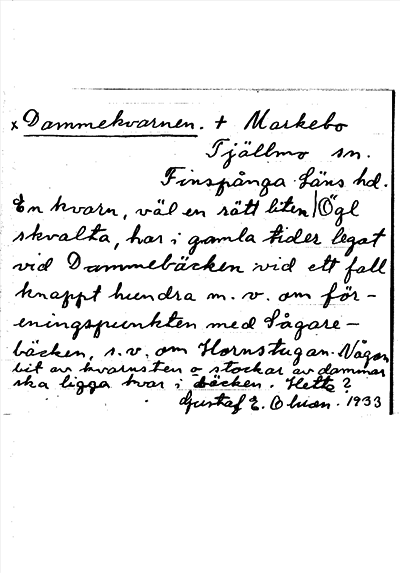 x Dammekvarnen. + Markebo
Tjällmo sn.
Finspånga Läns hd.
En kvarn, väl en rätt liten/Ögl
skvalta, har i gamla tider legat
vid Dammebäcken vid ett fall
knappt hundra m. v. om för-
eningspunkten med Sågare-
bäcken, s.v. om Hornstugan. Någon
bit av kvarnsten o stockar av dammar
ska ligga kvar i bäcken. Hette?
Gustaf E. Olson. 1933